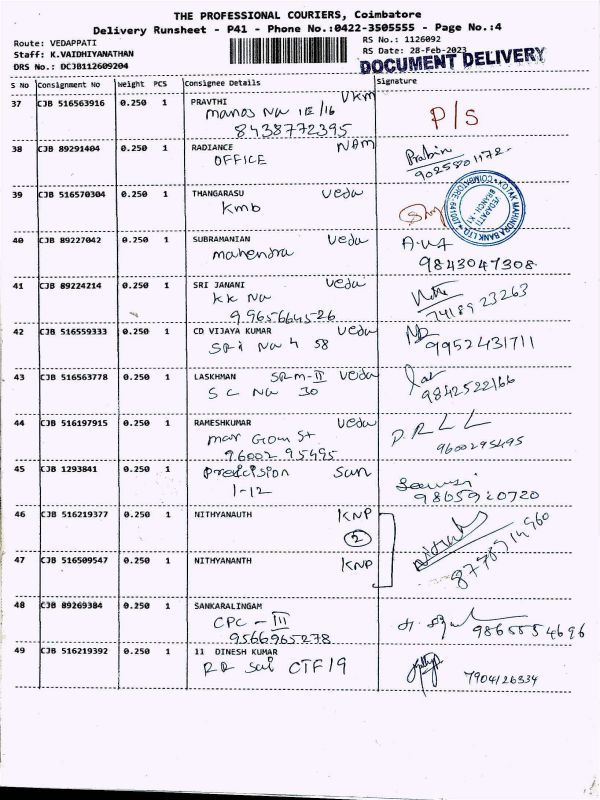 THE PROFESSIONAL COURIERS, Coimbatore
Delivery Runsheet - P41 - Phone No.:0422-3505555 - Page No.:4
Route: VEDAPPATI
RS No.: 1126092
Staff: K.VAIDHIYANATHAN
RS Date: 28-Feb-2023
DRS No.: DCJB112609204
DOCUMENT DELIVERY
S No Consignment No Weight PCS Consignee Details Signature
37 CJB 516563916 0.250 1 PRAVTHI VKm
manos Na IE/16
8438772395
P/S
38 CJB 89291404 0.250 1 RADIANCE NAM
OFFICE
Prabin
9025801172
39 CJB 516570304 0.250 1 THANGARASU Veda
Kmb
KOTAK MAHINDRA BANK LTD. COIMBATORE
VEDAPATTI
BRANCH
40 CJB 89227042 0.250 1 SUBRAMANIAN Veda
mahendra
9843047308
41 CJB 89224214 0.250 1 SRI JANANI Veda
KK Na
9965664526
7418923263
42 CJB 516559333 0.250 1 CD VIJAYA KUMAR Veda
SRi Na 4 58
9952431711
43 CJB 516563778 0.250 1 LASKHMAN SRM-II Veda
SC Na 30
9842522166
44 CJB 516197915 0.250 1 RAMESHKUMAR Veda
mar Gom St
9600295495
9600295495
45 CJB 1293841 0.250 1 Precision Sun
1-12
9865920720
46 CJB 516219377 0.250 1 NITHYANAUTH KNP
2
47 CJB 516509547 0.250 1 NITHYANANTH KNP
8778914960
48 CJB 89269384 0.250 1 SANKARALINGAM
CPC - III
9566965278
9865554696
49 CJB 516219392 0.250 1 11 DINESH KUMAR
RR Sai CTF19
7904126334